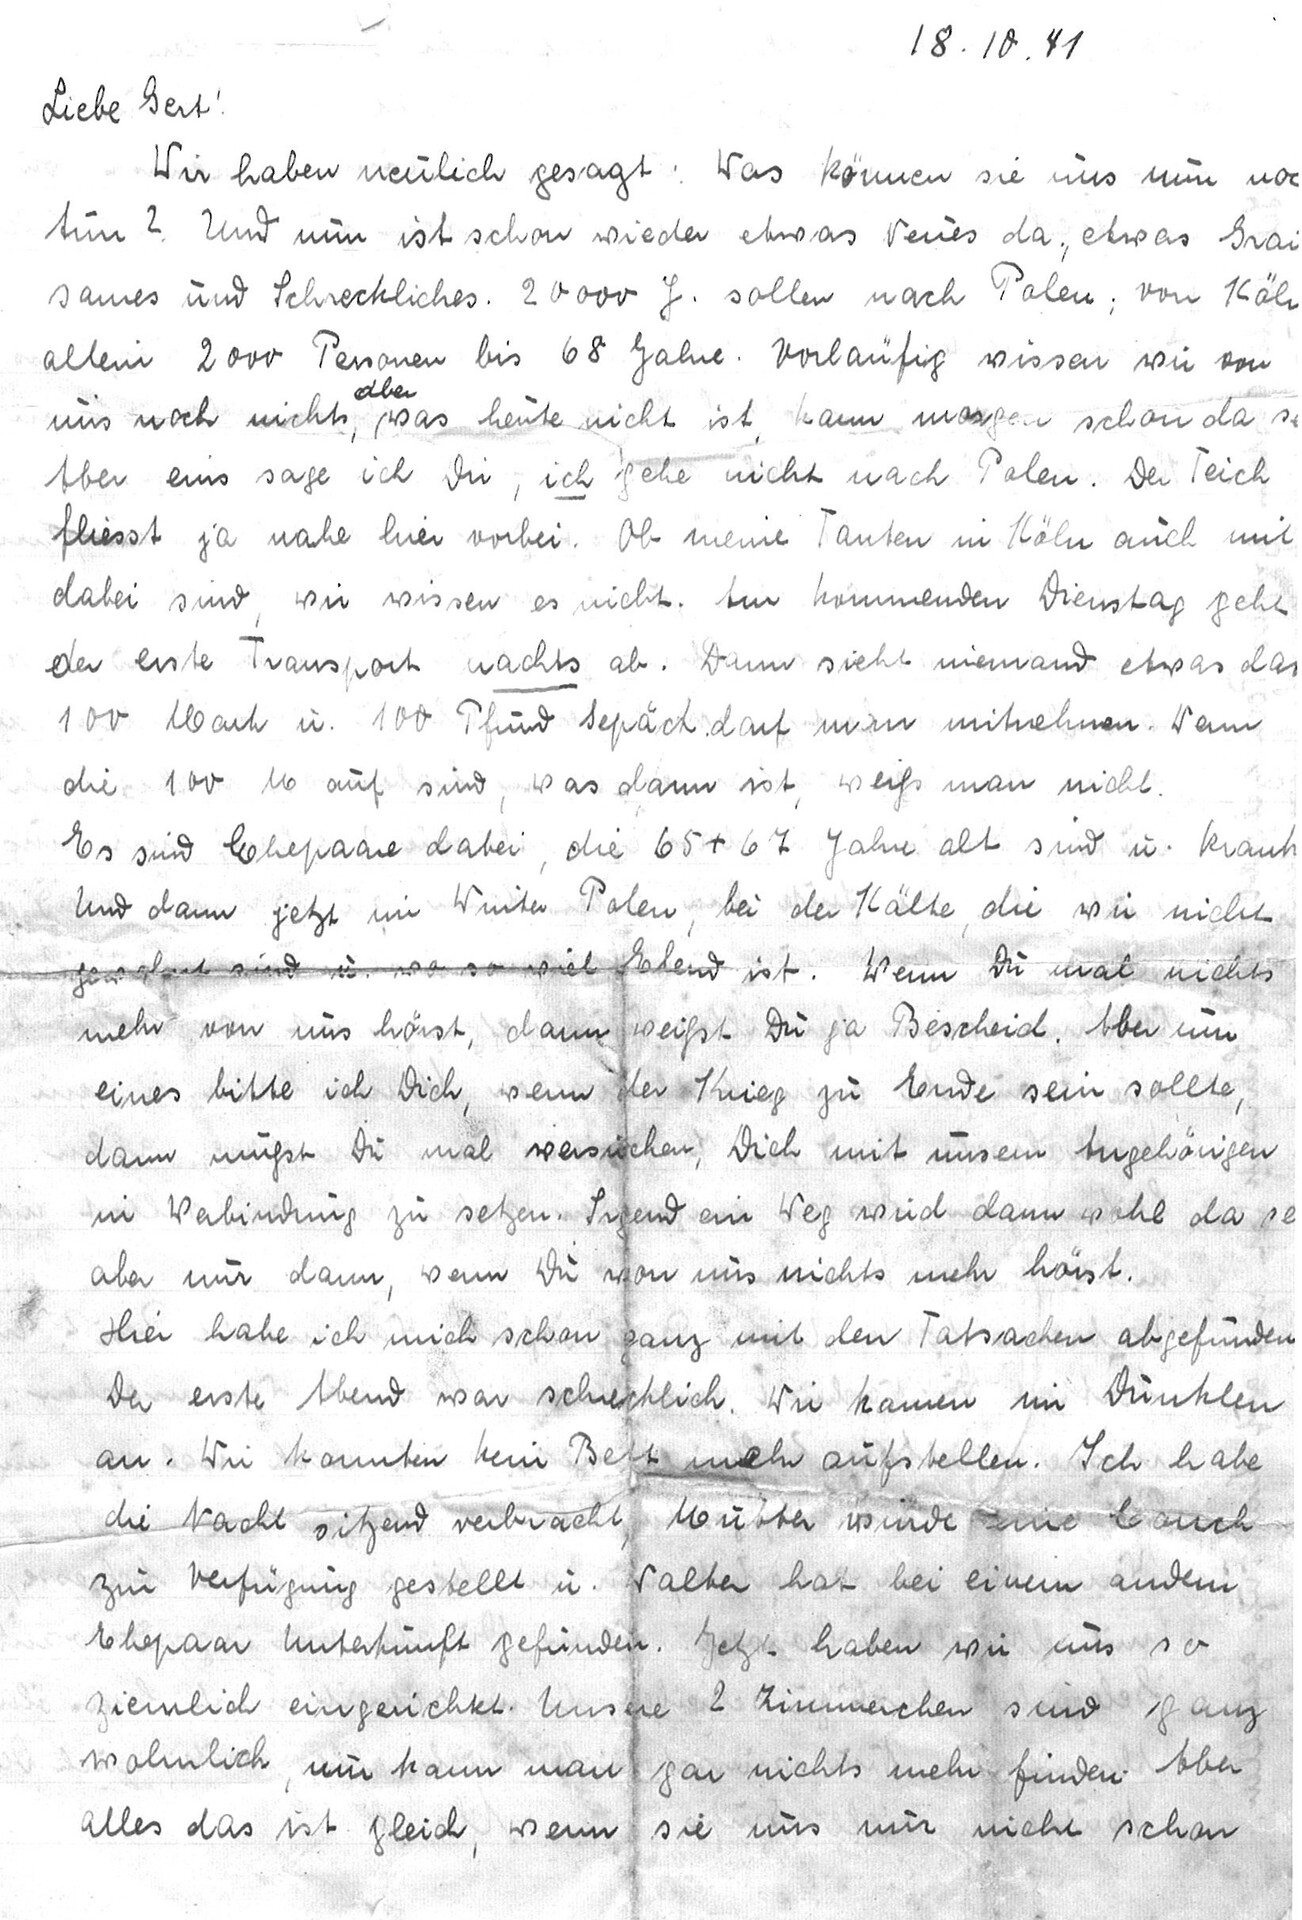 18.10.41
Liebe Gert!
Wir haben neulich gesagt: Was können sie uns nun noc
tun? Und nun ist schon wieder etwas Neues da, etwas Grau
sames und Schreckliches. 20000 J. sollen nach Polen, von Köln
allein 2000 Personen bis 68 Jahre. Vorläufig wissen wir von
uns noch nichts, aber was heute nicht ist, kann morgen schon da se
Aber eins sage ich Dir, ich gehe nicht nach Polen. Der Teich
fliesst ja nahe hier vorbei. Ob meine Tanten in Köln auch mit
dabei sind, wir wissen es nicht. Am kommenden Dienstag geht
der erste Transport nachts ab. Dann sieht niemand etwas da
100 Mark u. 100 Pfund Gepäck darf man mitnehmen. Wenn
die 100 M auf sind, was dann ist, weiß man nicht.
Es sind Ehepaare dabei, die 65 + 67 Jahre alt sind u. krank
Und dann jetzt im Winter Polen, bei der Kälte, die wir nicht
gewohnt sind u. wo so viel Elend ist. Wenn Du mal nichts
mehr von uns hörst, dann weißt Du ja Bescheid. Aber um
eines bitte ich Dich, wenn der Krieg zu Ende sein sollte,
dann mußt Du mal versuchen, Dich mit unsern Angehörigen
in Verbindung zu setzen. Irgend ein Weg wird dann wohl da se
aber nur dann, wenn Du von uns nichts mehr hörst.
Hier habe ich mich schon ganz mit den Tatsachen abgefunden
Der erste Abend war schrecklich. Wir kamen im Dunklen
an. Wir konnten kein Bett mehr aufstellen. Ich habe
die Nacht sitzend verbracht, Mutter wurde eine Couch
zur Verfügung gestellt u. Walter hat bei einem andern
Ehepaar Unterkunft gefunden. Jetzt haben wir uns so
ziemlich eingerichtet. Unsere 2 Zimmerchen sind ganz
wohnlich, nur kann man gar nichts mehr finden. Aber
alles das ist gleich, wenn sie uns nur nicht schon